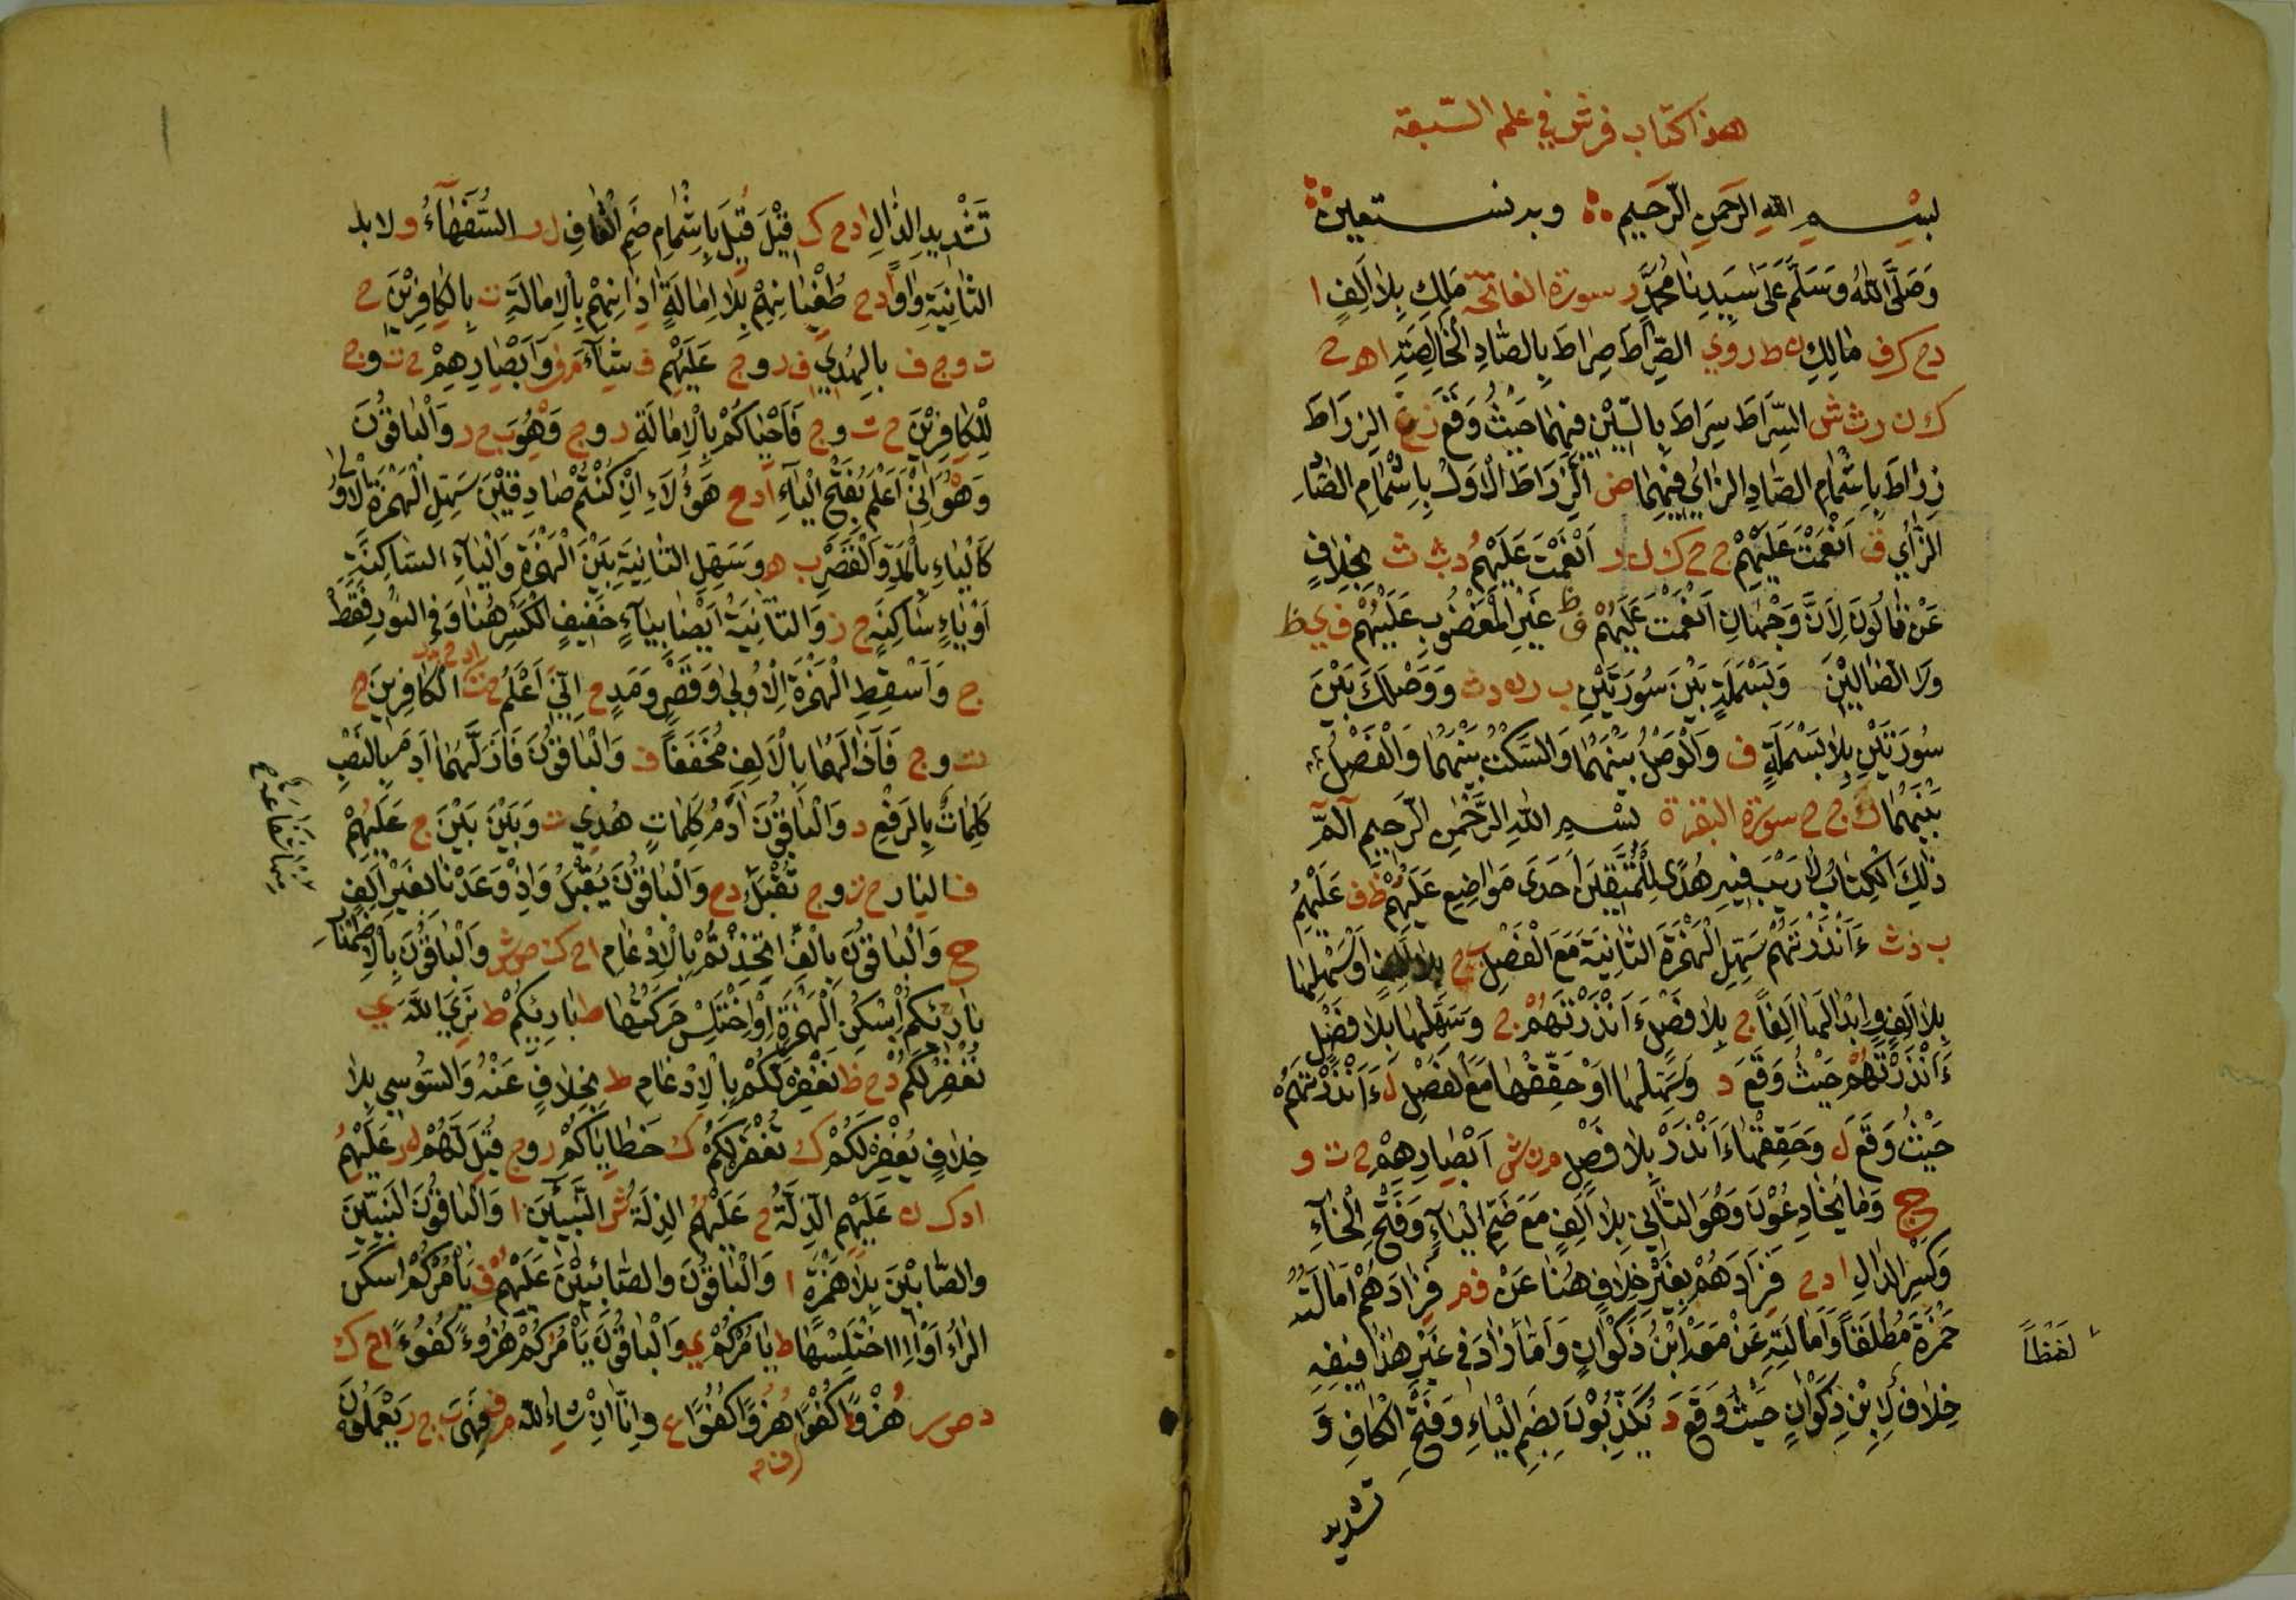 هذا كتاب فرش في علم السّبعة
بسم الله الرحمن الرّحيم وبه نستعين
وَصَلَّى اللهُ وَسَلَّمَ عَلَى سَيِّدِنَا مُحَمَّدٍ سورة الفاتحة مَلِكِ بِلَا اَلِفٍ ا
دح ك ف مَالِكِ ن ط ر و ي الصِّرَاطَ صِرَاطَ بِالصَّادِ الْخَالِصَةِ ا هـ ح
ك ن ر ث ش السِّرَاطَ سِرَاطَ بِالسِّيْنِ فِيْهِمَا حَيْثُ وَقَعَ ز غ الزِّرَاطَ
زِرَاطَ بِاِشْمَامِ الصَّادِ الزَّايَ فِيْهِمَا ض الزِّرَاطَ الْاَوَّلَ بِاِشْمَامِ الصَّادِ
الزَّايَ ق اَنْعَمْتَ عَلَيْهِمْ ج ح ك ل ر اَنْعَمْتَ عَلَيْهِمُ د ب ث بِخِلَافٍ
عَنْ قَالُونَ لِاَنَّ وَجْهَانِ اَنْعَمْتَ عَلَيْهُمْ ف ظ غَيْرِ الْمَغْضُوبِ عَلَيْهُمْ ف ي ظ
وَلَا الضَّالِّيْنَ وَبَسْمَلَةٍ بَيْنَ سُوْرَتَيْنِ ب ر ن د ث وَوَصْلُكَ بَيْنَ
سُوْرَتَيْنِ بِلَا بَسْمَلَةٍ ف وَالْوَصْلُ بَيْنَهُمَا وَالسَّكْتُ بَيْنَهُمَا وَالْفَصْلُ
بَيْنَهُمَا ك ج ح سورة البقرة بسم اللهِ الرَّحْمٰنِ الرَّحِيمِ آلٓمّٓ
ذٰلِكَ الْكِتَابُ لَا رَيْبَ فِيْهِ هُدًى لِلْمُتَّقِيْنَ اَحَدَى مَوَاضِعِ عَلَيْهُمْ ظ ف عَلَيْهِمُ
ب د ث ءَاَنْذَرْتَهُمْ سَهِّلِ الْهَمْزَةَ الثَّانِيَةَ مَعَ الْفَصْلِ ب ح بِلَا اَلِفٍ اَوْ سَهِّلْهَا
بِلَا اَلِفٍ وَاِبْدَالَهَا اَلِفًا ج بِلَا فَصْلٍ ءَاَنْذَرْتَهُمْ ج وَسَهِّلْهَا بِلَا فَصْلٍ
ءَاَنْذَرْتَهُمْ حَيْثُ وَقَعَ د وَسَهِّلْهَا اَوْ حَقِّقْهَا مَعَ الْفَصْلِ ل ءَاَنْذَرْتَهُمْ
حَيْثُ وَقَعَ ل وَحَقِّقْهَا ءَاَنْذَرْ بِلَا فَصْلٍ م ن ش اَبْصَارِهِمْ ح ت و
ج وَمَا يُخَادِعُوْنَ وَهُوَ الثَّانِيْ بِلَا اَلِفٍ مَعَ ضَمِّ الْيَآءِ وَفَتْحِ الْخَآءِ
وَكَسْرِ الدَّالِ ا د ح فَزَادَهُمْ بِغَيْرِ خِلَافٍ هُنَا عَنْ ف م فَزَادَهُمْ اَمَالَتَهُ
حَمْزَةَ مُطْلَقًا وَاَمَالَتِهِ عَنْ مَعَهُ اِبْنُ ذَكْوَانٍ وَاَمَّا زَادَ فِي غَيْرِ هٰذَا فَفِيْهِ
خِلَافُ لِاِبْنِ ذَكْوَانٍ حَيْثُ وَقَعَ د يُكَذِّبُوْنَ بِضَمِّ الْيَاءِ وَفَتْحِ الْكَافِ وَ
تشديد
لَفْظًا
تَشْدِيدِ الذَّالِ ا د ح ك قِيْلَ قُيْلَ بِاِشْمَامِ ضَمِّ الْقَافِ ل ر السُّفَهَآءُ ولا بدل
الثَّانِيَةِ وَاوًا ا د ح طُغْيَانِهِمْ بِلَا اِمَالَةٍ اٰذَانِهِمْ بِالْاِمَالَةِ ت بِالْكَافِرِيْنَ ح
ت و ج ف بِالْهُدٰى ف ر و ج عَلَيْهُمْ ف شَآءَ م ف وَاَبْصَارِهِمْ ح ت و ج
لِلْكَافِرِيْنَ ح ت و ج فَاَحْيَاكُمْ بِالْاِمَالَةِ ر و ج وَهْوَ ب ح ر وَالْبَاقُوْنَ
وَهُوَ اِنِّيْ اَعْلَمُ بِفَتْحِ الْيَآءِ ا د ح هٰؤُلَاءِ اِنْ كُنْتُمْ صَادِقِيْنَ سَهِّلِ الْهَمْزَةَ الْاُوْلٰى
كَالْيَاءِ بِالْمَدِّ وَالْقَصْرِ ب هـ وَسَهِّلِ الثَّانِيَةَ بَيْنَ الْهَمْزَةِ وَالْيَآءِ السَّاكِنَةِ
اَوْ يَاءٍ سَاكِنَةٍ ج ز وَالثَّانِيَةُ اَيْضًا بِيَآءٍ خَفِيْفِ الْكَسْرِ هُنَا وَفِي النُّوْرِ فَقَطْ
ج وَاَسْقِطِ الْهَمْزَةَ الْاُوْلٰى وَقَصْرٍ وَمَدٍ ح اِنِّيَ اَعْلَمُ ا د ح ث الْكَافِرِيْنَ ح
ت و ج فَاَزَالَهُمَا بِالْاَلِفِ مُخَفَّفًا ف وَالْبَاقُوْنَ فَاَزَلَّهُمَا اٰدَمَ بِالنَّصْبِ
كَلِمَاتٌ بِالرَّفْعِ د وَالْبَاقُوْنَ اٰدَمُ كَلِمَاتٍ هُدٰى ت وَبَيْنَ بَيْنَ ج عَلَيْهُمْ
ف النار ح ت و ج تُقْبَلُ د ح وَالْبَاقُوْنَ يُقْبَلُ وَاِذْ وَعَدْنَا بِغَيْرِ اَلِفٍ
ح وَالْبَاقُوْنَ بِاَلِفٍ اتَّخَذْتُمْ بِالْاِدْغَامِ ا ح ك ص ش وَالْبَاقُوْنَ بِالْاِظْهَارِ
بَارِئِكُمْ اِسْكِنِ الْهَمْزَةَ اَوْ اِخْتَلِسْ حَرَكَتَهَا ط بَارِئِكُمْ ط نَرَى اللّٰهَ ي
نَغْفِرْ لَكُمْ د ح ظ نَغْفِرْ لَكُمْ بِالْاِدْغَامِ ط بِخِلَافٍ عَنْهُ وَالسُّوْسِي بِلَا
خِلَافٍ يُغْفَرْ لَكُمْ ك تُغْفَرْ لَكُمْ ك خَطَايَاكُمْ ر و ج قِيْلَ لَهُمْ ل ر عَلَيْهِمُ
ا د ك ن عَلَيْهِمِ الذِّلَّةُ ح عَلَيْهُمُ الذِّلَّةُ ش النَّبِيْئِيْنَ ا وَالْبَاقُوْنَ النَّبِيِّيْنَ
وَالصَّابِيْنَ بِلَا هَمْزَةٍ ا وَالْبَاقُوْنَ وَالصَّابِئِيْنَ عَلَيْهُمْ ف يَاْمُرْكُمْ اِسْكَنَ
الرَّاءُ اَوْ اِخْتَلِسْهَا ط يَاْمُرْكُمْ ي وَالْبَاقُوْنَ يَاْمُرُكُمْ هُزُوءً كُفُوءً ا ح ك
د ص ر هُزْوًا كُفْوًا هُزُوًا كُفُوًا ع وَاِنَّا اِنْ شَاءَ اللّٰه م ف فَهْيَ ب ح ر يَعْمَلُوْنَ